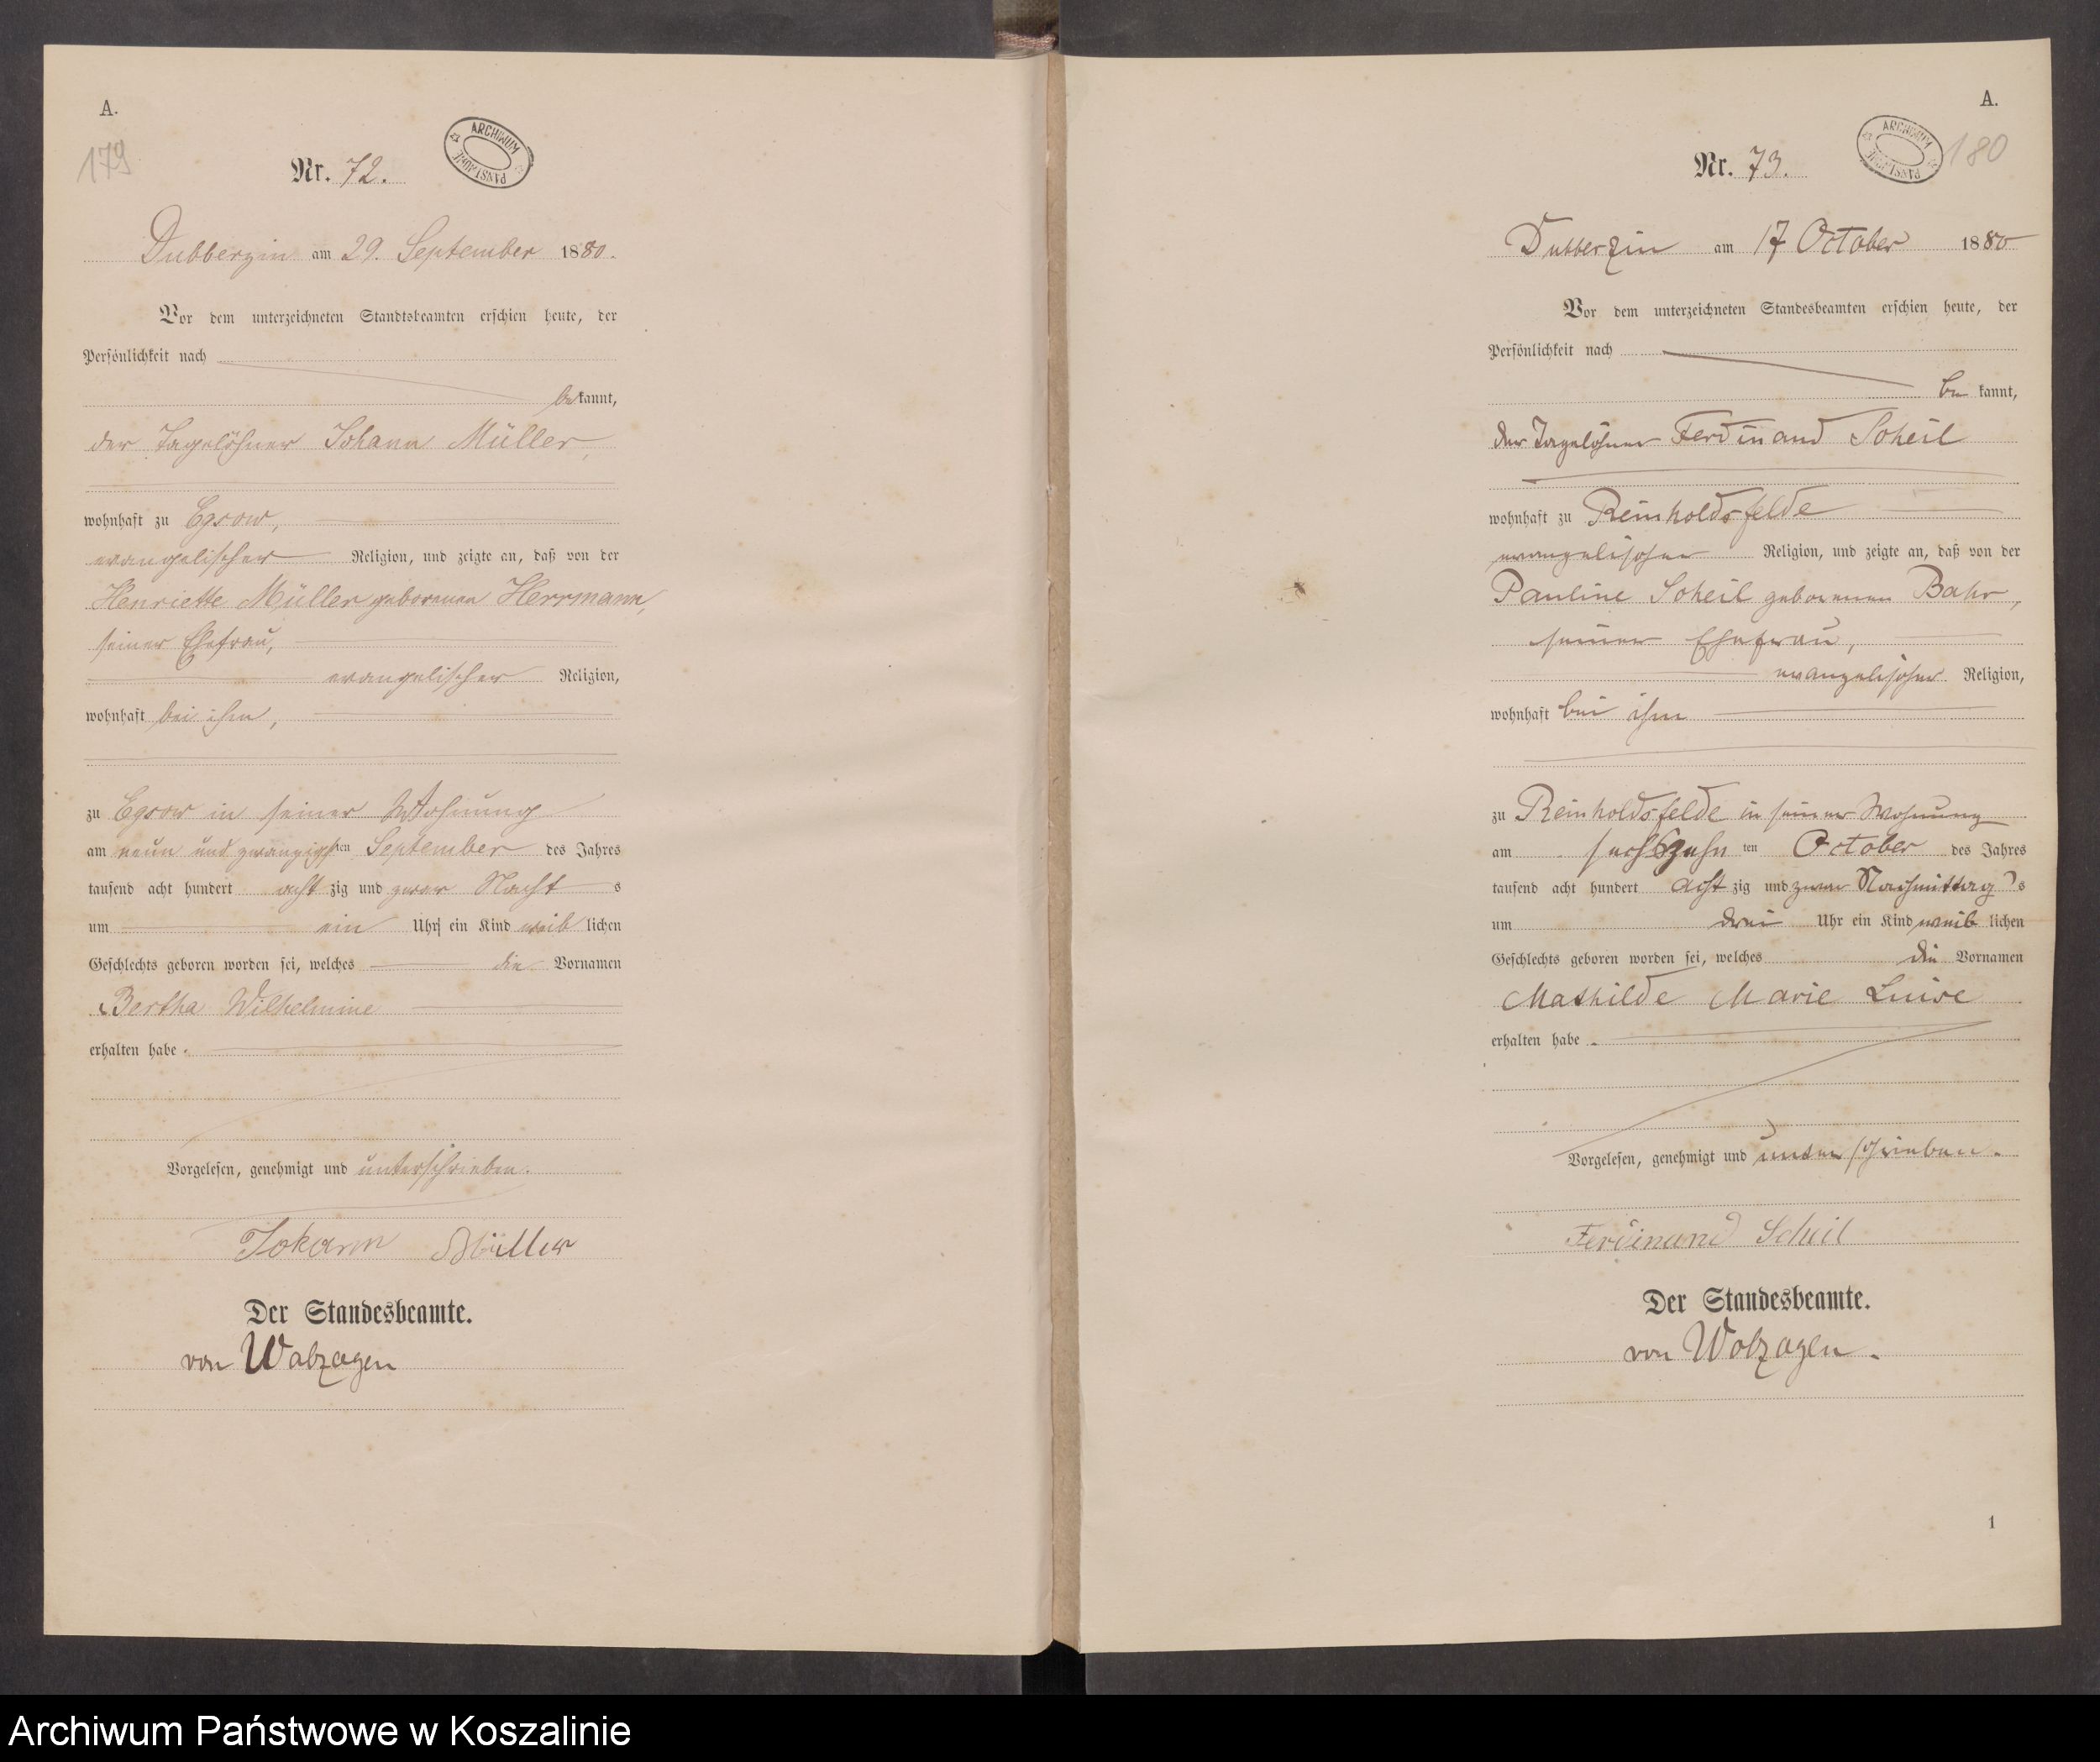 A.
179
Nr. 72.
ARCHIWUM PAŃSTWOWE
Dubberzin am 29. September 1880.
Vor dem unterzeichneten Standtsbeamten erschien heute, der
Persönlichkeit nach
bekannt,
der Tagelöhner Johann Müller,
wohnhaft zu Egsow,
evangelischer Religion, und zeigte an, daß von der
Henriette Müller geborenen Herrmann,
seiner Ehefrau,
evangelischer Religion,
wohnhaft bei ihm,
zu Egsow in seiner Wohnung
am neun und zwanzigsten September des Jahres
tausend acht hundert acht zig und zwar Nacht s
um ein Uhr ein Kind weib lichen
Geschlechts geboren worden sei, welches die Vornamen
Bertha Wilhelmine
erhalten habe.
Vorgelesen, genehmigt und unterschrieben.
Johann Müller
Der Standesbeamte.
von Wolzogen
A.
180
Nr. 73.
ARCHIWUM PAŃSTWOWE
Dubberzin am 17 October 1880
Vor dem unterzeichneten Standesbeamten erschien heute, der
Persönlichkeit nach
be kannt,
der Tagelöhner Ferdinand Scheil
wohnhaft zu Reinholdsfelde
evangelischer Religion, und zeigte an, daß von der
Pauline Scheil geborenen Bahr,
seiner Ehefrau,
evangelischer Religion,
wohnhaft bei ihm
zu Reinholdsfelde in seiner Wohnung
am sechszehn ten October des Jahres
tausend acht hundert acht zig und zwar Nachmittag s
um drei Uhr ein Kind weib lichen
Geschlechts geboren worden sei, welches die Vornamen
Mathilde Marie Luise
erhalten habe.
Vorgelesen, genehmigt und unterschrieben.
Ferdinand Scheil
Der Standesbeamte.
von Wolzogen.
1
Archiwum Państwowe w Koszalinie